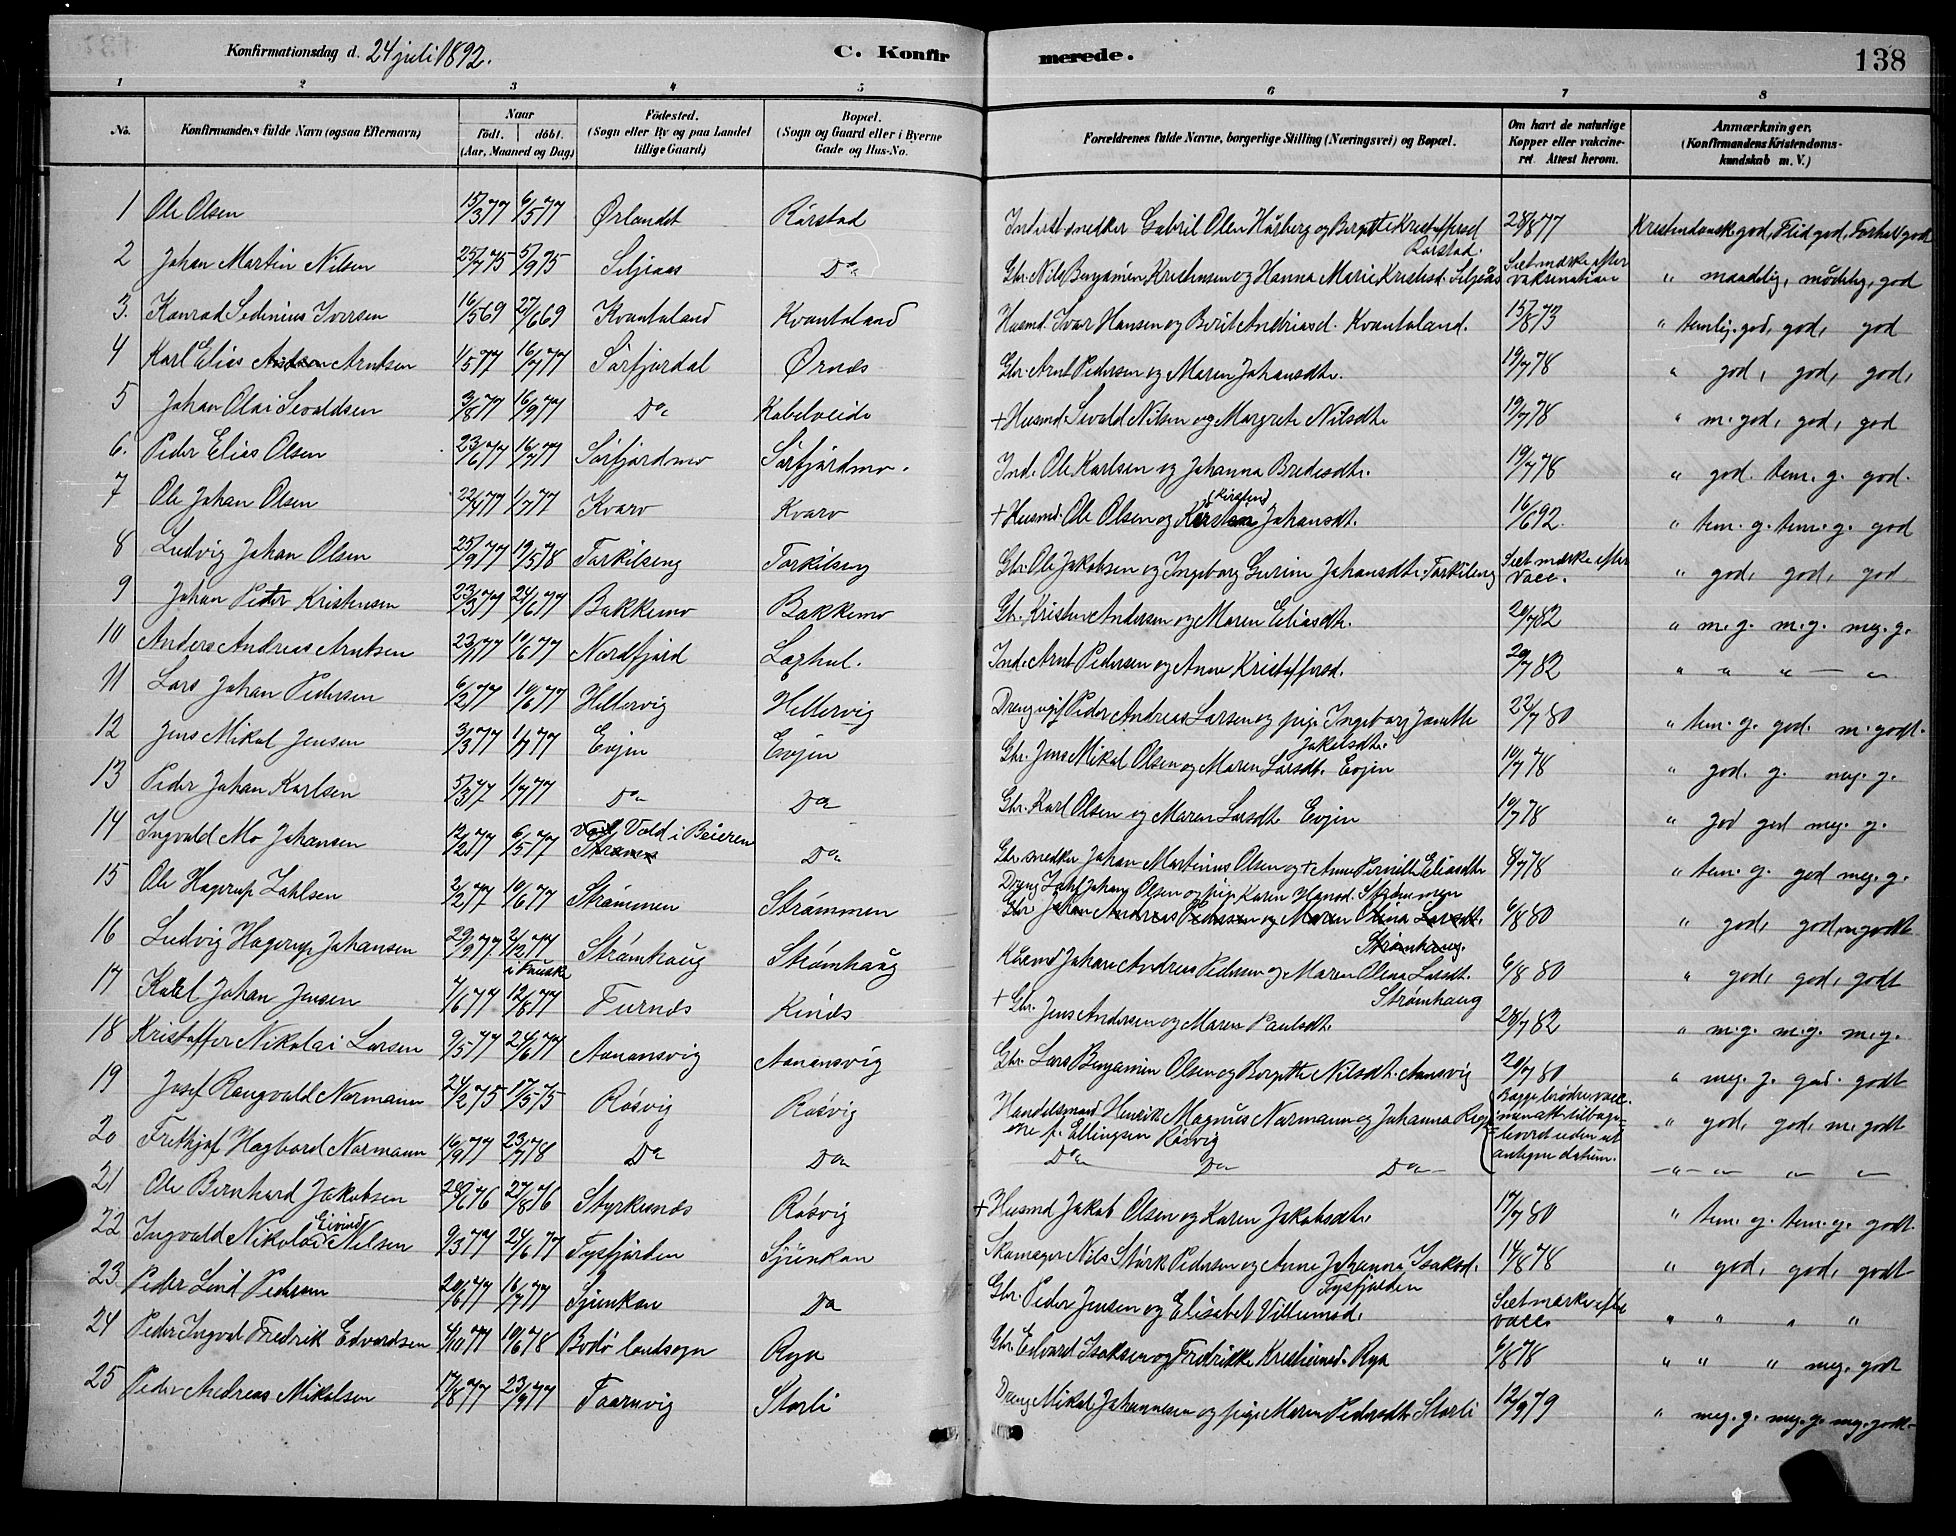 Konfirmationsdag d. 24 juli 1892. C. Konfirmerede. 138
1 2 3 4 5 6 7 8
No. Konfirmandens fulde Navn (ogsaa Efternavn) Naar født. døbt. (Aar, Maaned og Dag) Födested. (Sogn eller By og paa Landet tillige Gaard) Bopæl. (Sogn og Gaard eller i Byerne Gade og Hus-No. Forældrenes fulde Navne, borgerlige Stilling (Næringsvei) og Bopæl. Om havt de naturlige Kopper eller vakcineret. Attest herom. Anmærkninger. (Konfirmandens Kristendomskundskab m. V.)
1 Ole Olsen 15/3 77 6/5 77 Ørlandet Rørstad Inderst snedker Gabriel Olen Hårberg og Bergitte Kristoffersd Rørstad. 28/8 77 Kristendomsk god, Flid god, Forhold godt
2 Johan Martin Nilsen 25/7 75 5/9 75 Siljeaas Do Gbr. Nils Benjamin Kristensen og Hanna Marie Kristensd. Siljeås Set mærke efter vaksination " maadelig, mådelig, god
3. Konrad Sedinius Iversen 16/5 69 27/6 69 Kvantoland Kvantoland Husmd. Ivar Hansen og Berit Andriasd. Kvantoland. 15/8 73 " temlig. god, god, god
4 Karl Elias Arntsen 1/5 77 16/7 77 Sørfjordal Ørnes Gbr. Arnt Pedersen og Maren Johansdtr. 19/7 78 " god, god, god,
5 Johan Olai Sevaldsen 3/8 77 16/9 77 Do Kabelveide + Husmd. Sevald Nilsen og Margrete Nilsdtr 19/7 78 " m. god, god, god
6. Peder Elias Olsen 23/6 77 16/7 77 Sørfjordmo Sørfjordmo. Ind. Ole Karlsen og Johanna Bredesdtr. 19/7 78 " god. tem. g. god.
7 Ole Johan Olsen 22/4 77 1/7 77 Kvarv Kvarv + Husmd. Ole Olsen og (Kirsten) Johansdt. 16/6 92. " tem. g. tem. g. god
8 Ludvig Johan Olsen 25/9 77 19/5 78 Torkilseng Torkilseng Gbr. Ole Jakobsen og Ingeborg Gurine Johansdtr. Torkilseng Set mærke efter vacc. " god, god, god
9 Johan Peder Kristensen 23/3 77 24/6 77 Bakkemo Bakkemo Gbr. Kristen Andersen og Maren Eliasdtr. 20/7 82 " m. g. m. g. meg. g.
10 Anders Andreas Arntsen 23/1 77 10/6 77 Nordfjord Laxhul. Ind. Arnt Pedersen og Anne Kristoffersd. 20/7 82 " " " — "
11 Lars Johan Pedersen 6/2 77 10/6 77 Hellervig Hellervig Dreng ugift Peder Andreas Larsen og pige Ingeborg Janette Jakobsdtr. 22/7 80 " tem. g. god. m. godt.
12 Jens Mikal Jensen 3/3 77 1/7 77 Evjen Evjen Gbr. Jens Mikal Olsen og Maren Larsdt. Evjen 10/7 78 " god. g. meg. g.
13 Peder Johan Karlsen 5/3 77 1/7 77 Do Do Gbr. Karl Olsen og Maren Larsdt. Evjen 10/7 78 " god god meg. g.
14 Ingvald Mo Johansen 12/2 77 6/5 77 Vold i Beieren Do Gbr. snedker Johan Martinus Olsen og + Anne Pernille Eliasdtr 8/7 78 " tem. g. god meg. g.
15 Ole Hagerup Zahlsen 2/2 77 10/6 77 Strømmen Strømmen Dreng Zahl Johan Olsen og pige Karen Hansd. Strømmen Gbr. Johan Andreas Pedersen og Maren Olina Larsdt. Strømhaug. 6/8 80 " god, god, m godt
16 Ludvig Hagerup Johansen 29/9 77 2/12 77 i Fauske Strømhaug Strømhaug Husmd Johan Andreas Pedersen og Maren Olina Larsdt. Strømhaug 6/8 80 " god, god, godt
17 Karl Johan Jensen 7/6 77 12/6 77 Furnes Kines + Gbr. Jens Andersen og Maren Paulsdt. 28/7 82 " m. g. m. g. m. g.
18 Kristoffer Nikolai Larsen 9/5 77 24/6 77 Aanansvig Aanansvig Gbr. Lars Benjamin Olsen og Bergitte Nilsdt. Aansvig 20/7 80 " meg. g. god. godt
19 Josef Rangvald Normann 24/2 75 17/5 75 Røsvig Røsvig Handelsmand Henrik Magnus Normann og Johanna Regine f. Ellingsen Røsvig Begge brødres vaccinenatt. tilbageleveret uden at antegne datum. " god, god, m. godt
20 Frithjof Hagbard Normann 16/9 77 23/7 78 Do Do Do Do Do — " — " " "
21 Ole Bernhard Jakobsen 20/6 76 27/8 76 Styrkesnes Røsvig + Husmd Jakob Olsen og Karen Jakobsdtr 17/7 80 " tem. g. tem. g. godt
22 Ingvald Nikolai Eivind Nilsen 9/3 77 24/6 77 Tysfjorden Sjunkan Skomager Nils Størk Pedersen og Anne Johanna Isaksd. Tysfjorden 14/8 78 " god, god, godt
23 Peder Lind Pedersen 20/6 77 16/7 77 Sjunkan Do Gbr. Peder Jensen og Elisabet Villumsd. Set mærke efter vacc. " " " "
24 Peder Ingval Fredrik Edvardsen 4/10 77 10/6 78 Bodø landsogn Rya Gbr. Edvard Isaksen og Fredrikke Kristiansd. Rya 6/8 78 " " " meg. godt
25 Peder Andreas Mikalsen 17/8 77 23/9 77 Taarnvig Storli Dreng Mikal Johannesen og pige Maren Pedersdtr Storli 12/9 79 " meg. g. meg. g. meg. godt.